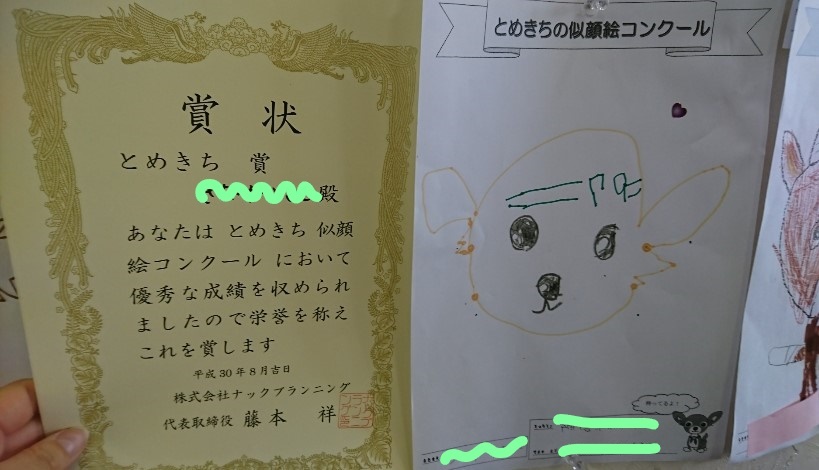 賞 状
とめきち 賞
殿
あなたは とめきち 似顔
絵コンクール において
優秀な成績を収められ
ましたので栄誉を称え
これを賞します
平成30年8月吉日
株式会社ナックプランニング
代表取締役 藤本 祥
とめきちの似顔絵コンクール
待ってるよ!